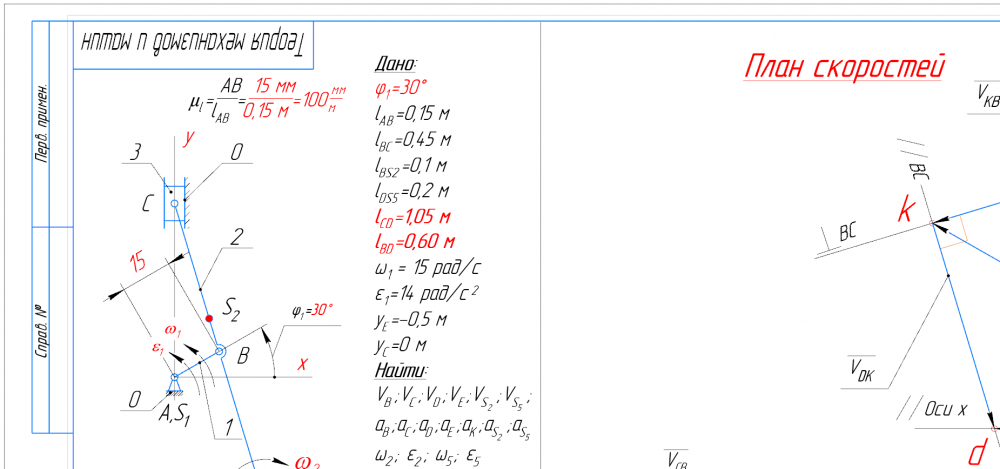 Теория механизмов и машин
Перв. примен.
Справ. №
μl = AB/lAB = 15 мм/0,15 м = 100 мм/м
y
3
0
C
2
15
S2
ω1
ε1
φ1=30°
B
x
0
A,S1
1
ω2
Дано:
φ1=30°
lAB=0,15 м
lBC=0,45 м
lBS2=0,1 м
lDS5=0,2 м
lCD=1,05 м
lBD=0,60 м
ω1 = 15 рад/с
ε1=14 рад/с2
yE=-0,5 м
yC=0 м
Найти:
VB; VC; VD; VE; VS2; VS5;
aB; aC; aD; aE; aK; aS2; aS5
ω2; ε2; ω5; ε5
План скоростей
VKB
// BC
k
⊥ BC
VDK
// Оси x
d
VCB